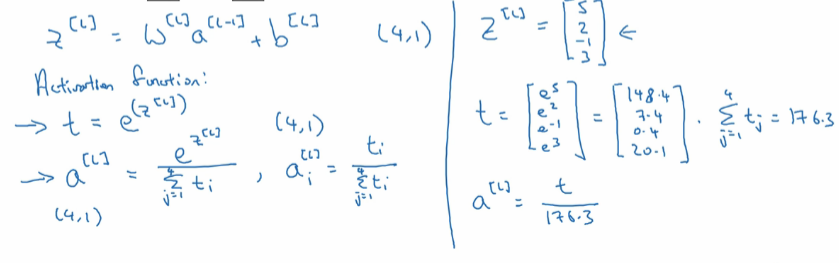 z^[L] = W^[L] a^[L-1] + b^[L] (4,1)
Activation function:
→ t = e^(z^[L]) (4,1)
→ a^[L] = e^z^[L] / ∑_{j=1}^{4} t_i , a_i^[L] = t_i / ∑_{j=1}^{4} t_i
(4,1)
z^[L] = [5 2 -1 3] ←
t = [e^5 e^2 e^-1 e^3] = [148.4 7.4 0.4 20.1] . ∑_{j=1}^{4} t_j = 176.3
a^[L] = t / 176.3